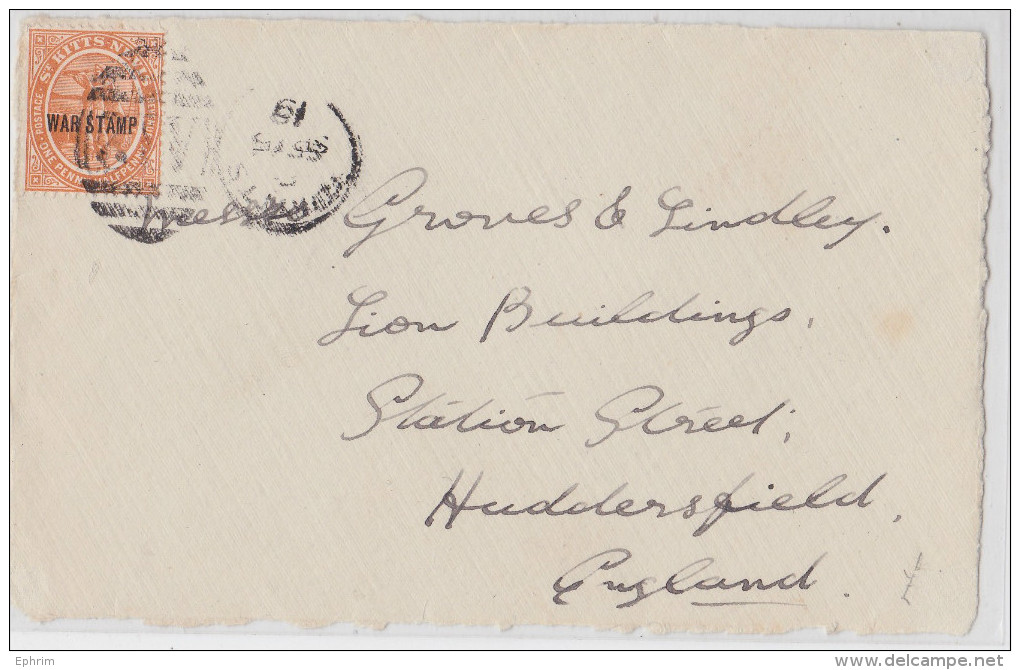 ST KITTS-NEVIS
POSTAGE
REVENUE
WAR STAMP
ONE PENNY HALFPENNY
19
Messrs Groves & Lindley.
Lion Buildings,
Station Street,
Huddersfield,
England.
Ephrim
delcampe.net